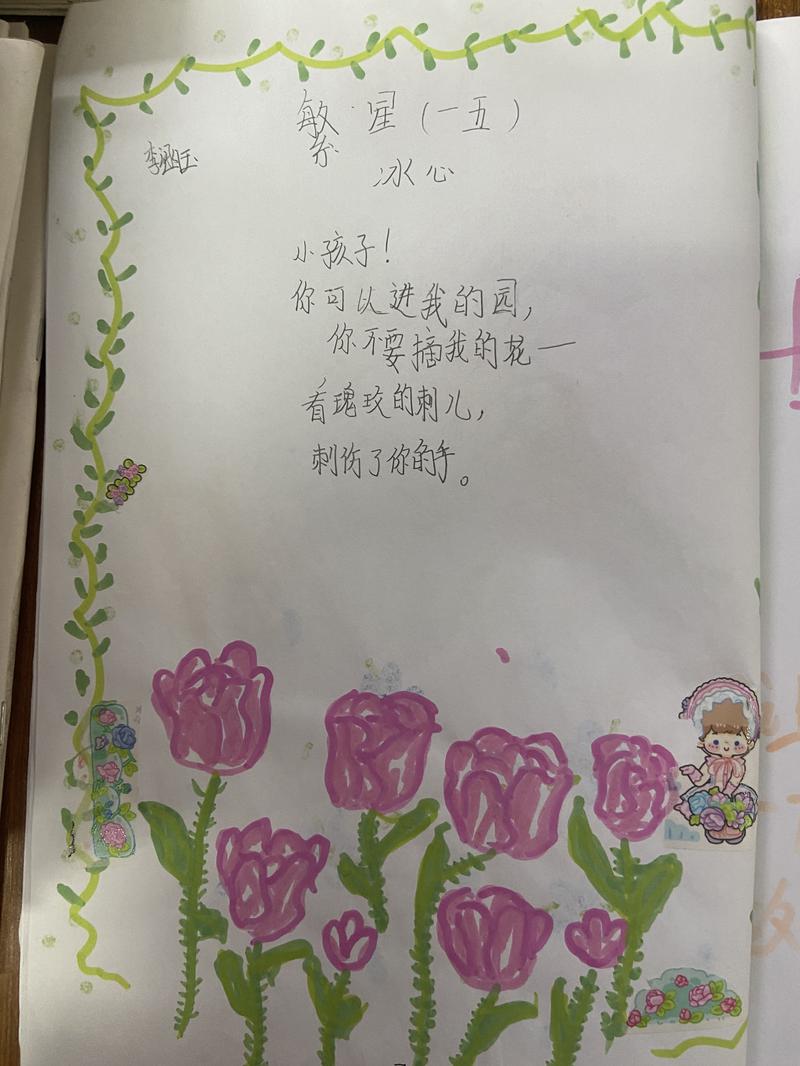 繁星（一五）
冰心
小孩子！
你可以进我的园，
你不要摘我的花—
看瑰玫的刺儿，
刺伤了你的手。